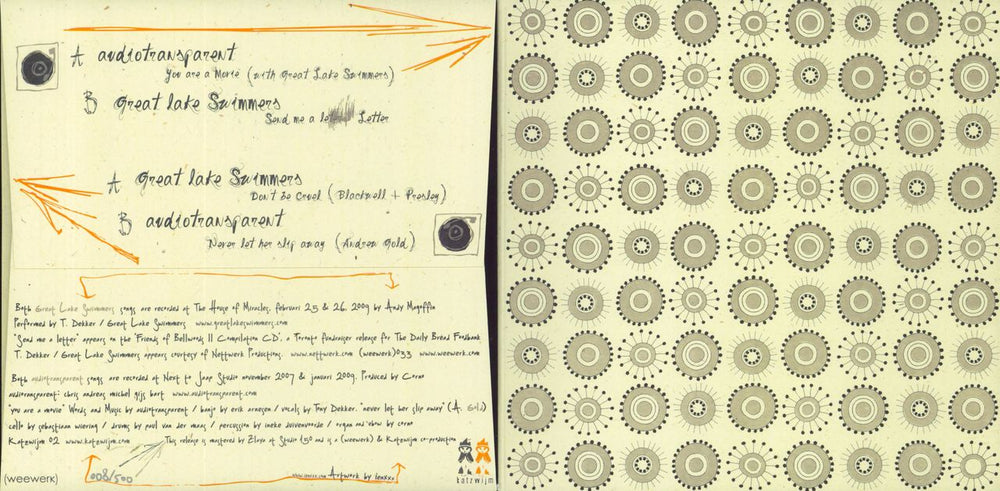 A audiotransparent
You are a Movie (with Great Lake Swimmers)
B Great Lake Swimmers
Send me a Letter
A Great Lake Swimmers
Don't Be Cruel (Blackwell + Presley)
B audiotransparent
Never let her slip away (Andrew Gold)
Both Great Lake Swimmers songs are recorded at The House of Miracles, february 25 & 26, 2009 by Andy Magoffin
Performed by T. Dekker / Great Lake Swimmers www.greatlakeswimmers.com
'Send me a letter' appears on the 'Friends of Bellwoods II Compilation CD', a Toronto fundraiser release for The Daily Bread Foodbank
T. Dekker / Great Lake Swimmers appears courtesy of Nettwerk Productions. www.nettwerk.com (weewerk)033 www.weewerk.com
Both audiotransparent songs are recorded at Next to Jaap Studio november 2007 & januari 2009. Produced by Corno
audiotransparent: chris andreas michel gijs bart www.audiotransparent.com
"you are a movie" Words and Music by audiotransparent / banjo by erik arnesen / vocals by Tony Dekker. 'never let her slip away' (A. Gold)
cello by sebastiaan wiering / drums by paul van der maas / percussion by ineke duivenvoorde / organ and 'ebow by corno
Katzwijm 02 www.katzwijm.com This release is mastered by Zlaya at Studio 150 and is a (weewerk) & Katzwijm co-production
(weewerk) 008/500 Artwork by katzwijm